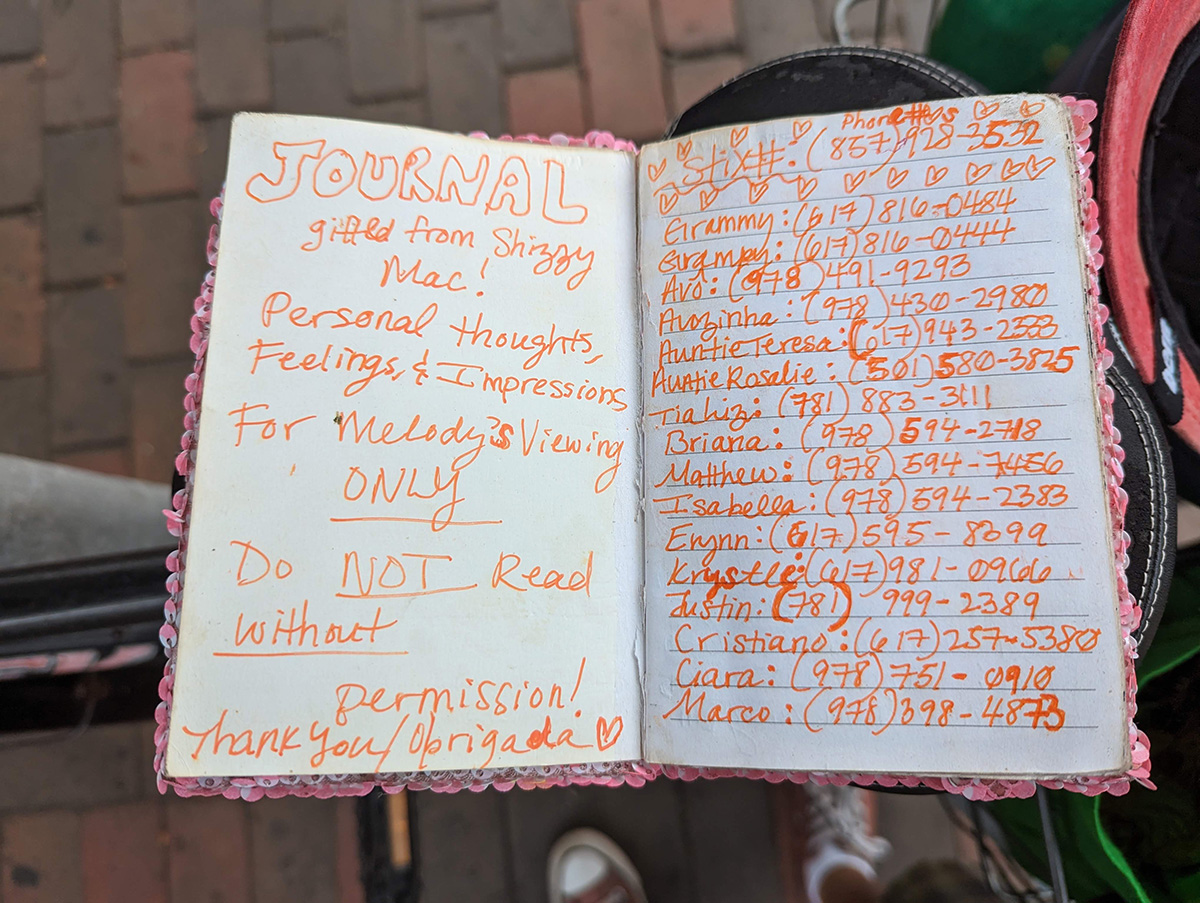 JOURNAL
gifted from Shizzy
Mac!
Personal thoughts,
Feelings, & Impressions
For Melody's Viewing
ONLY
Do NOT Read
without
permission!
Thank you/Obrigada
Phone #'s
Stix#: (857)928-3532
Grammy: (617)816-0484
Grampy: (617)816-0444
Avó: (978)491-9293
Avozinha: (978)430-2980
Auntie Teresa: (617)943-2333
Auntie Rosalie: (501)580-3825
Tia Liz: (781) 883-3111
Briana: (978)594-2718
Matthew: (978)594-7456
Isabella: (978)594-2383
Erynn: (617)595-8399
Krystle: (617)981-0966
Justin: (781) 999-2389
Cristiano: (617)257-5380
Ciara: (978)751-0910
Marco: (978)398-4873